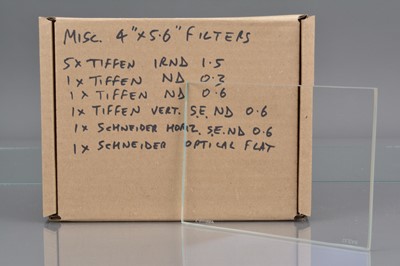 MISC. 4"x5.6" FILTERS
5x TIFFEN IRND 1.5
1x TIFFEN ND 0.3
1x TIFFEN ND 0.6
1x TIFFEN VERT. S.E. ND 0.6
1x SCHNEIDER HORIZ. S.E. ND 0.6
1x SCHNEIDER OPTICAL FLAT